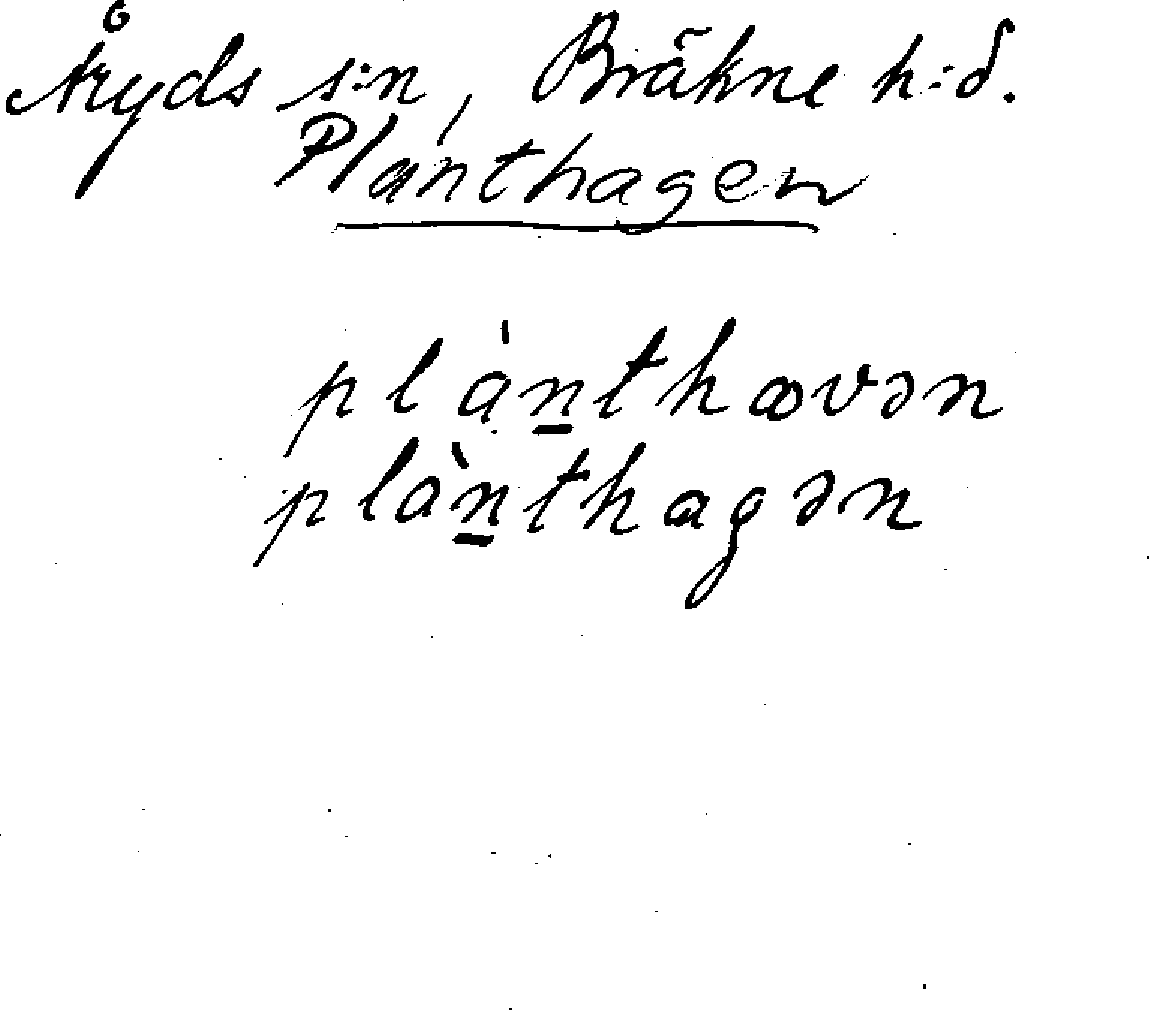 Åryds s:n, Bräkne h:d.
Planthagen
plànthavən
plànthagən